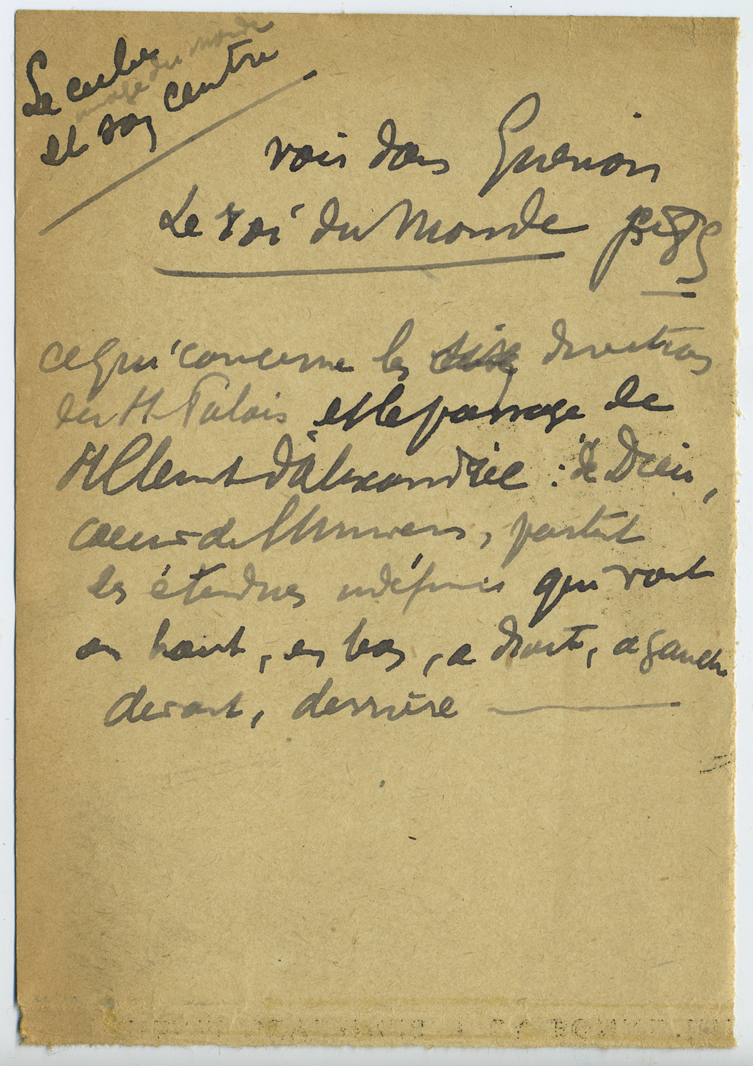 Le cube
image du monde
et son centre
voir dans Guenon
Le roi du Monde
ce qui concerne les directions
du St Palais et le passage de
St Clement d'Alexandrie : de Dieu,
coeur de l'Univers, partent
les étendues indéfinies qui vont
en haut, en bas, a droite, a gauche
devant, derrière